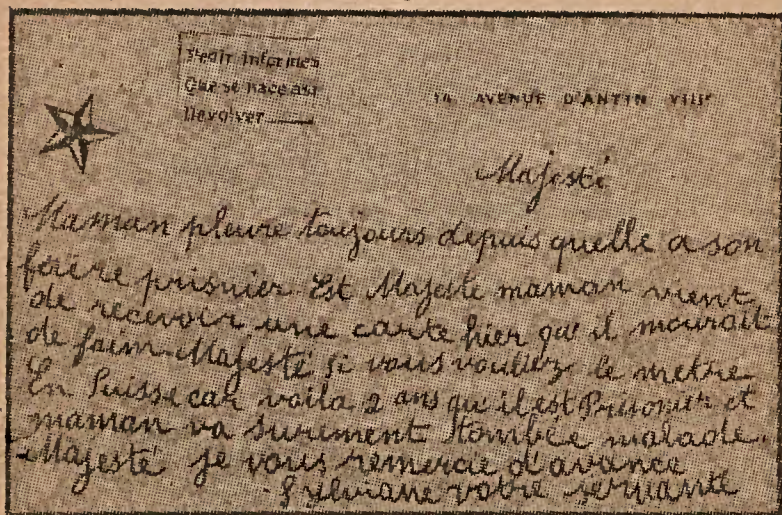 Pedir informes
Que se hace así
Devolver
14 AVENUE D'ANTIN VIIIe
Majesté
Maman pleure toujours depuis quelle a son
frère prisnier Est Majesté maman vient
de recevoir une carte hier qu'il mourait
de faim Majesté si vous vouliez le metre
En Suisse car voila 2 ans qu'il est Prisonier et
maman va surement tombée malade.
Majesté je vous remercie d'avance
Sylviane votre servante